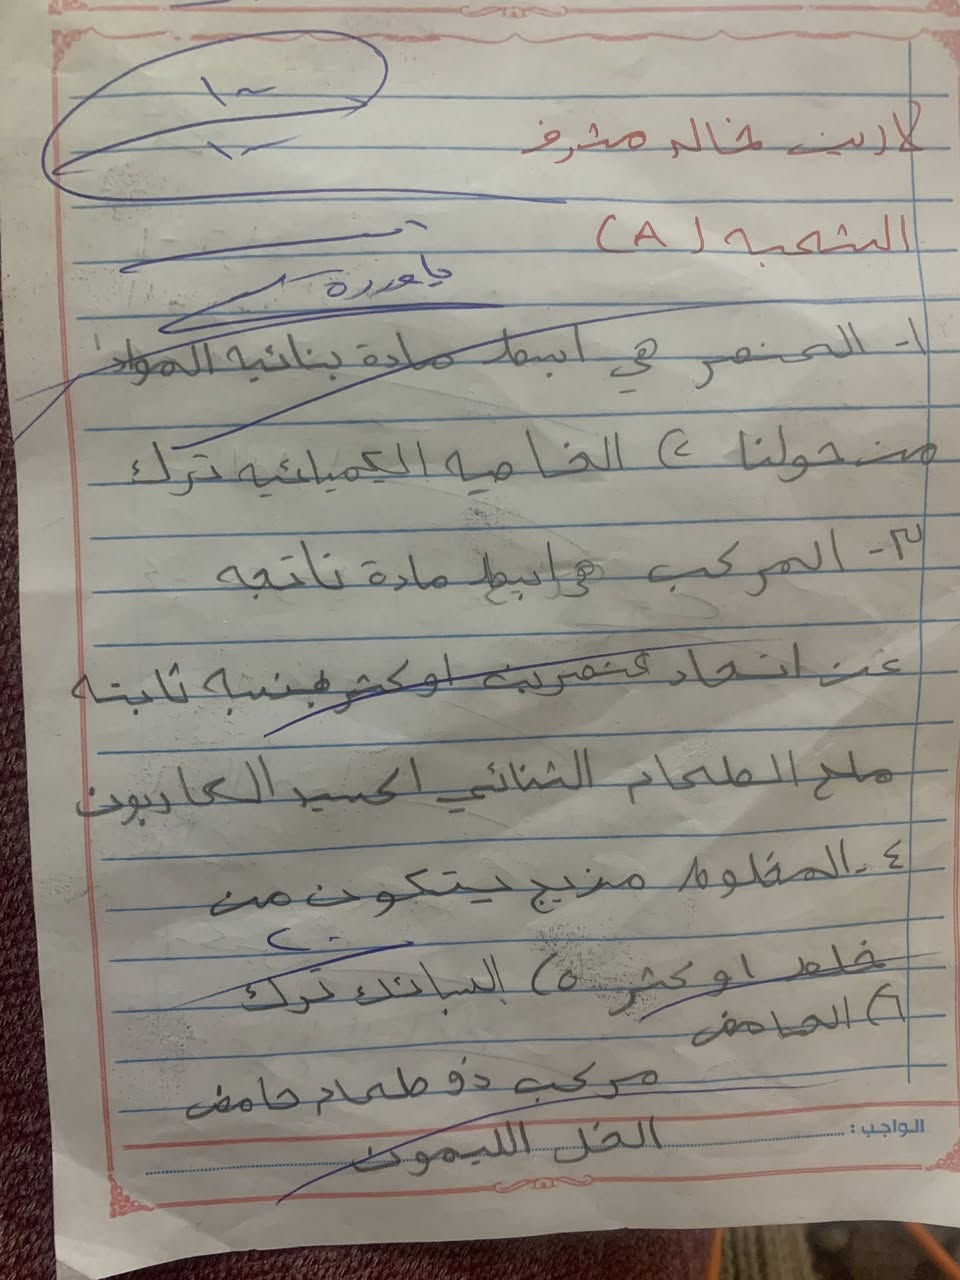 ١٠٠
١٠٠
لارين خالد مشرف
الشعبه (A)
١- العنصر هي ابسط مادة بنائيه المواد
من حولنا ٢) الخاصيه الكميائيه ترك
٣- المركب هي ابسط مادة ناتجه
عن اتحاد عنصرين او كثر بنسبه ثابته
ملح الطعام الثنائي اكسيد الكاربون
٤- المخلوط مزيج يتكون من
٢٠
خلط او كثر ٥) السبائك ترك
٦) الحامض
مركب ذو طعام حامض
الواجب:
الخل الليمون